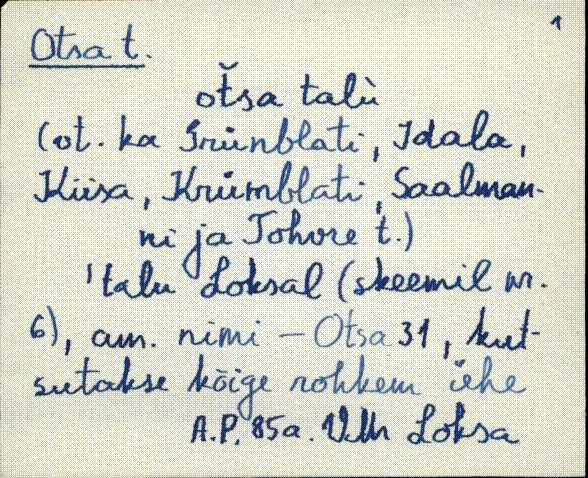 1
Otsa t.
otša talù
(vt. ka Grünblati, Idala,
Kiisa, Krümblati, Saalman-
ni ja Tohvre t.)
'talu Loksal (skeemil nr.
6), am. nimi – Otsa 31, kut-
sutakse kõige rohkem ühe
A.P. 85a. VMr Loksa